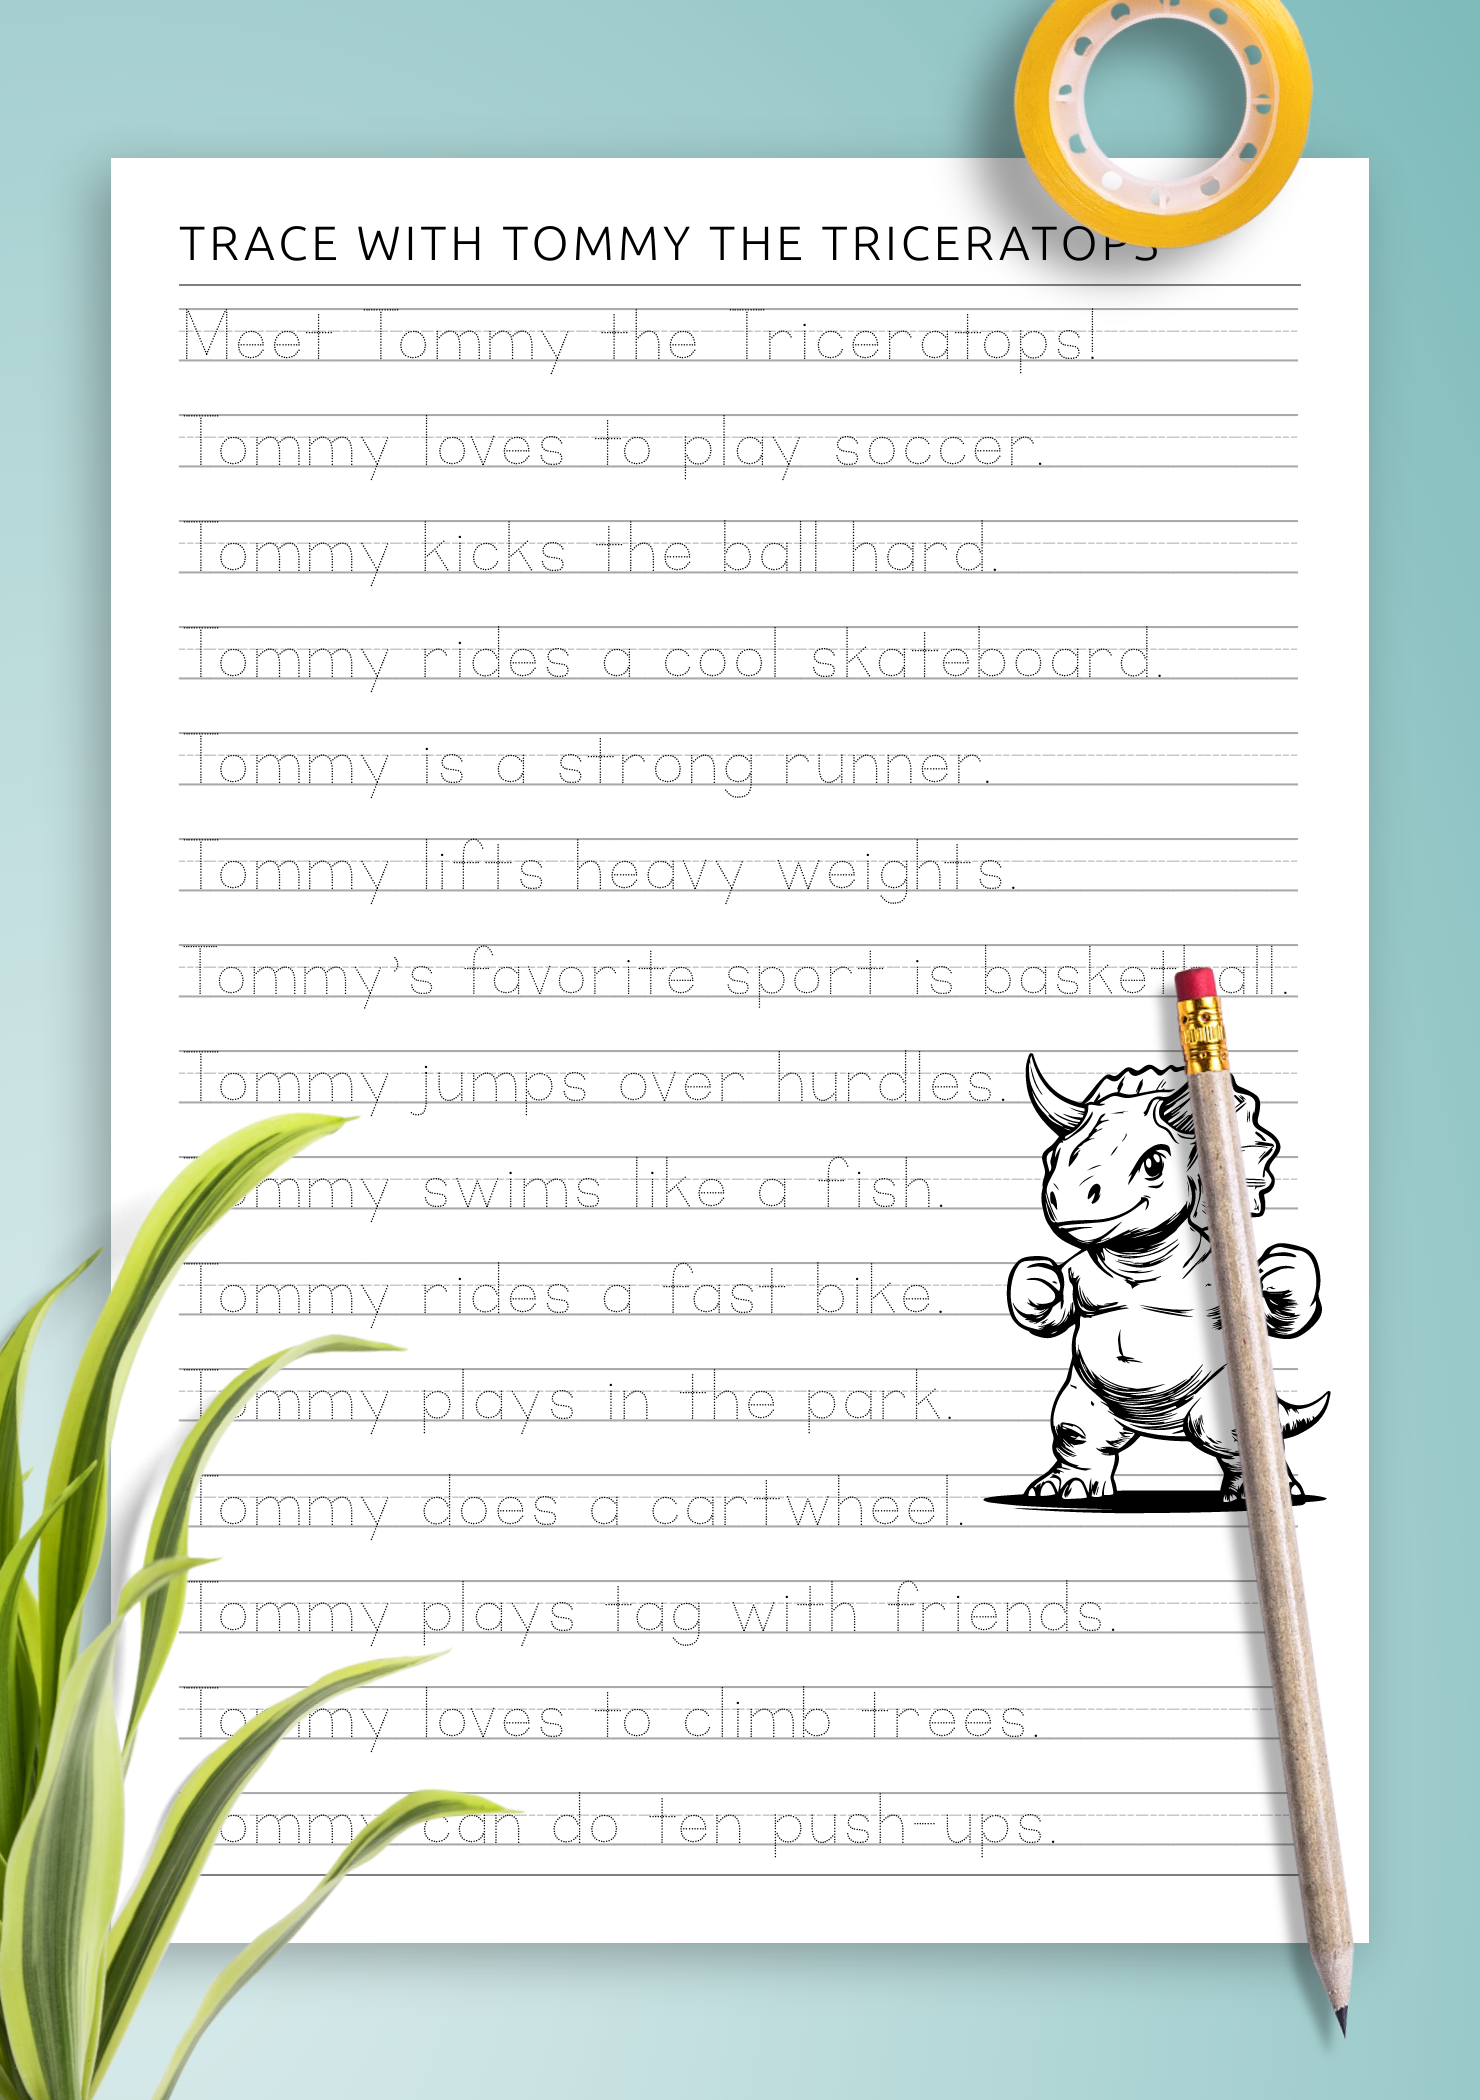 TRACE WITH TOMMY THE TRICERATOPS
Meet Tommy the Triceratops!
Tommy loves to play soccer.
Tommy kicks the ball hard.
Tommy rides a cool skateboard.
Tommy is a strong runner.
Tommy lifts heavy weights.
Tommy's favorite sport is basketball.
Tommy jumps over hurdles.
Tommy swims like a fish.
Tommy rides a fast bike.
Tommy plays in the park.
Tommy does a cartwheel.
Tommy plays tag with friends.
Tommy loves to climb trees.
Tommy can do ten push-ups.